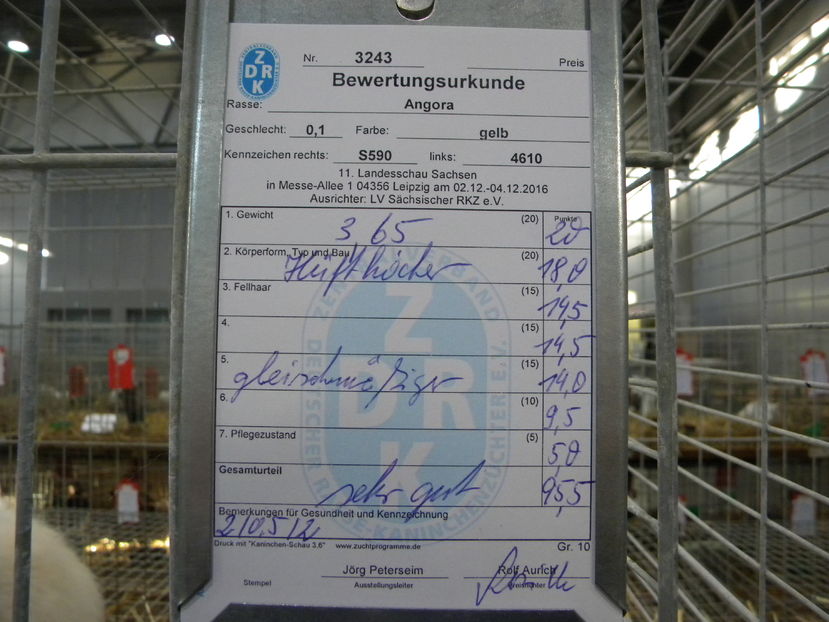 Z
DRK
K
Nr. 3243 Preis
Bewertungsurkunde
Rasse: Angora
Geschlecht: 0,1 Farbe: gelb
Kennzeichen rechts: S590 links: 4610
11. Landesschau Sachsen
in Messe-Allee 1 04356 Leipzig am 02.12.-04.12.2016
Ausrichter: LV Sächsischer RKZ e.V.
1. Gewicht 3 65 (20) Punkte 20
2. Körperform, Typ und Bau Hüfthöcker (20) 18,0
3. Fellhaar (15) 14,5
4. (15) 14,5
5. gleichmäßiger (15) 14,0
6. (10) 9,5
7. Pflegezustand (5) 5,0
Gesamturteil sehr gut 95,5
Bemerkungen für Gesundheit und Kennzeichnung
Druck mit "Kaninchen-Schau 3.6" www.zuchtprogramme.de Gr. 10
Jörg Peterseim Rolf Aurich
Stempel Ausstellungsleiter Preisrichter